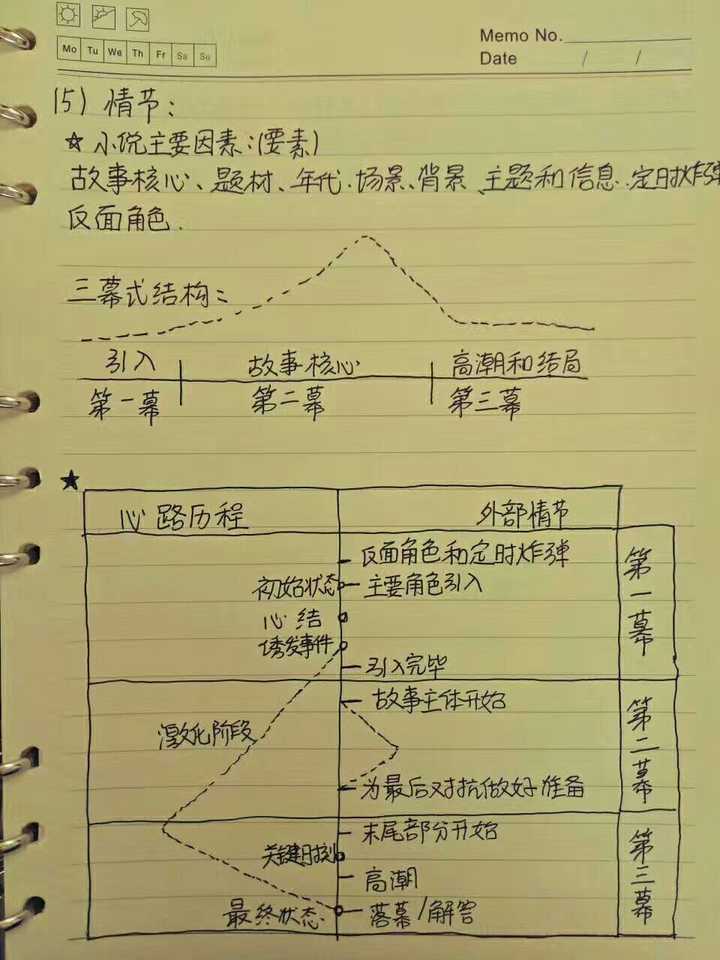 Memo No.
Mo Tu We Th Fr Sa Su
Date / /
(5) 情节:
☆ 小说主要因素:(要素)
故事核心、题材、年代.场景、背景、主题和信息.定时炸弹
反面角色.
三幕式结构:
引入 故事核心 高潮和结局
第一幕 第二幕 第三幕
★
心路历程 外部情节
反面角色和定时炸弹
初始状态 主要角色引入
心结
诱发事件
引入完毕
第一幕
故事主体开始
激化阶段
为最后对抗做好准备
第二幕
末尾部分开始
关键时刻
高潮
最终状态 落幕/解答
第三幕